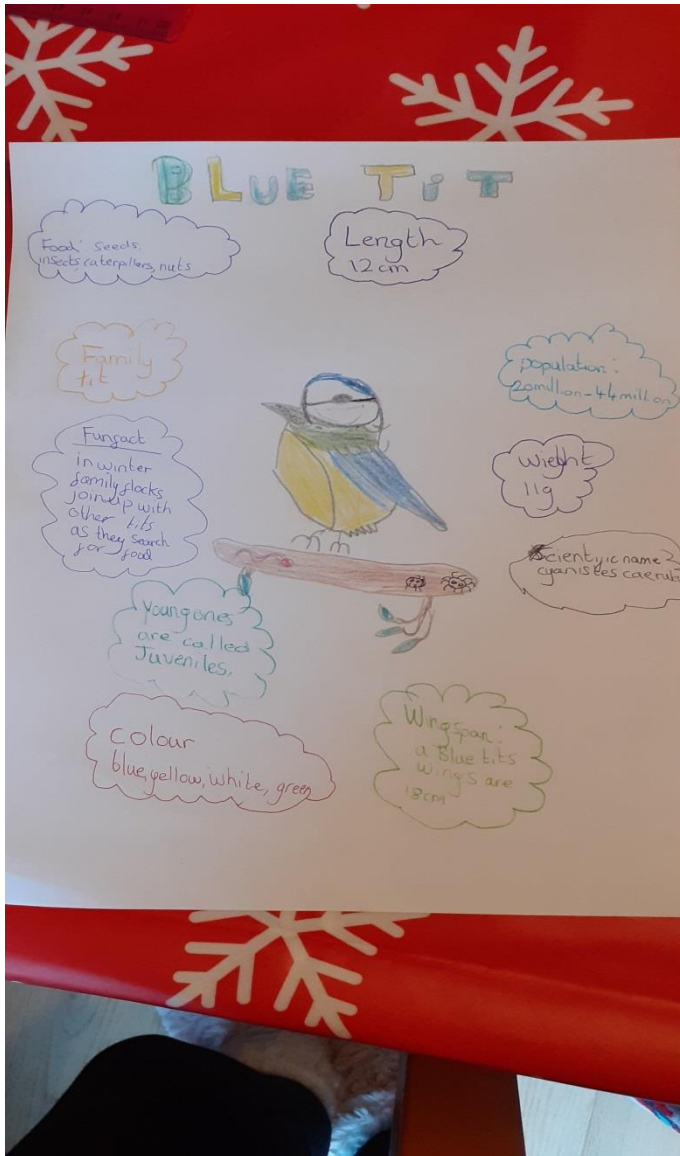 BLUE TiT
Food: Seeds,
insects, caterpillers, nuts
Length
12cm
Family
tit
population:
20million-44million
Funfact
in winter
family flocks
join up with
other tits
as they search
for food
Wieght
11g
Scientific name:
cyanistes caerul
Young ones
are called
Juveniles.
colour
blue, yellow, white, green
Wingspan:
a Blue tits
wings are
18cm